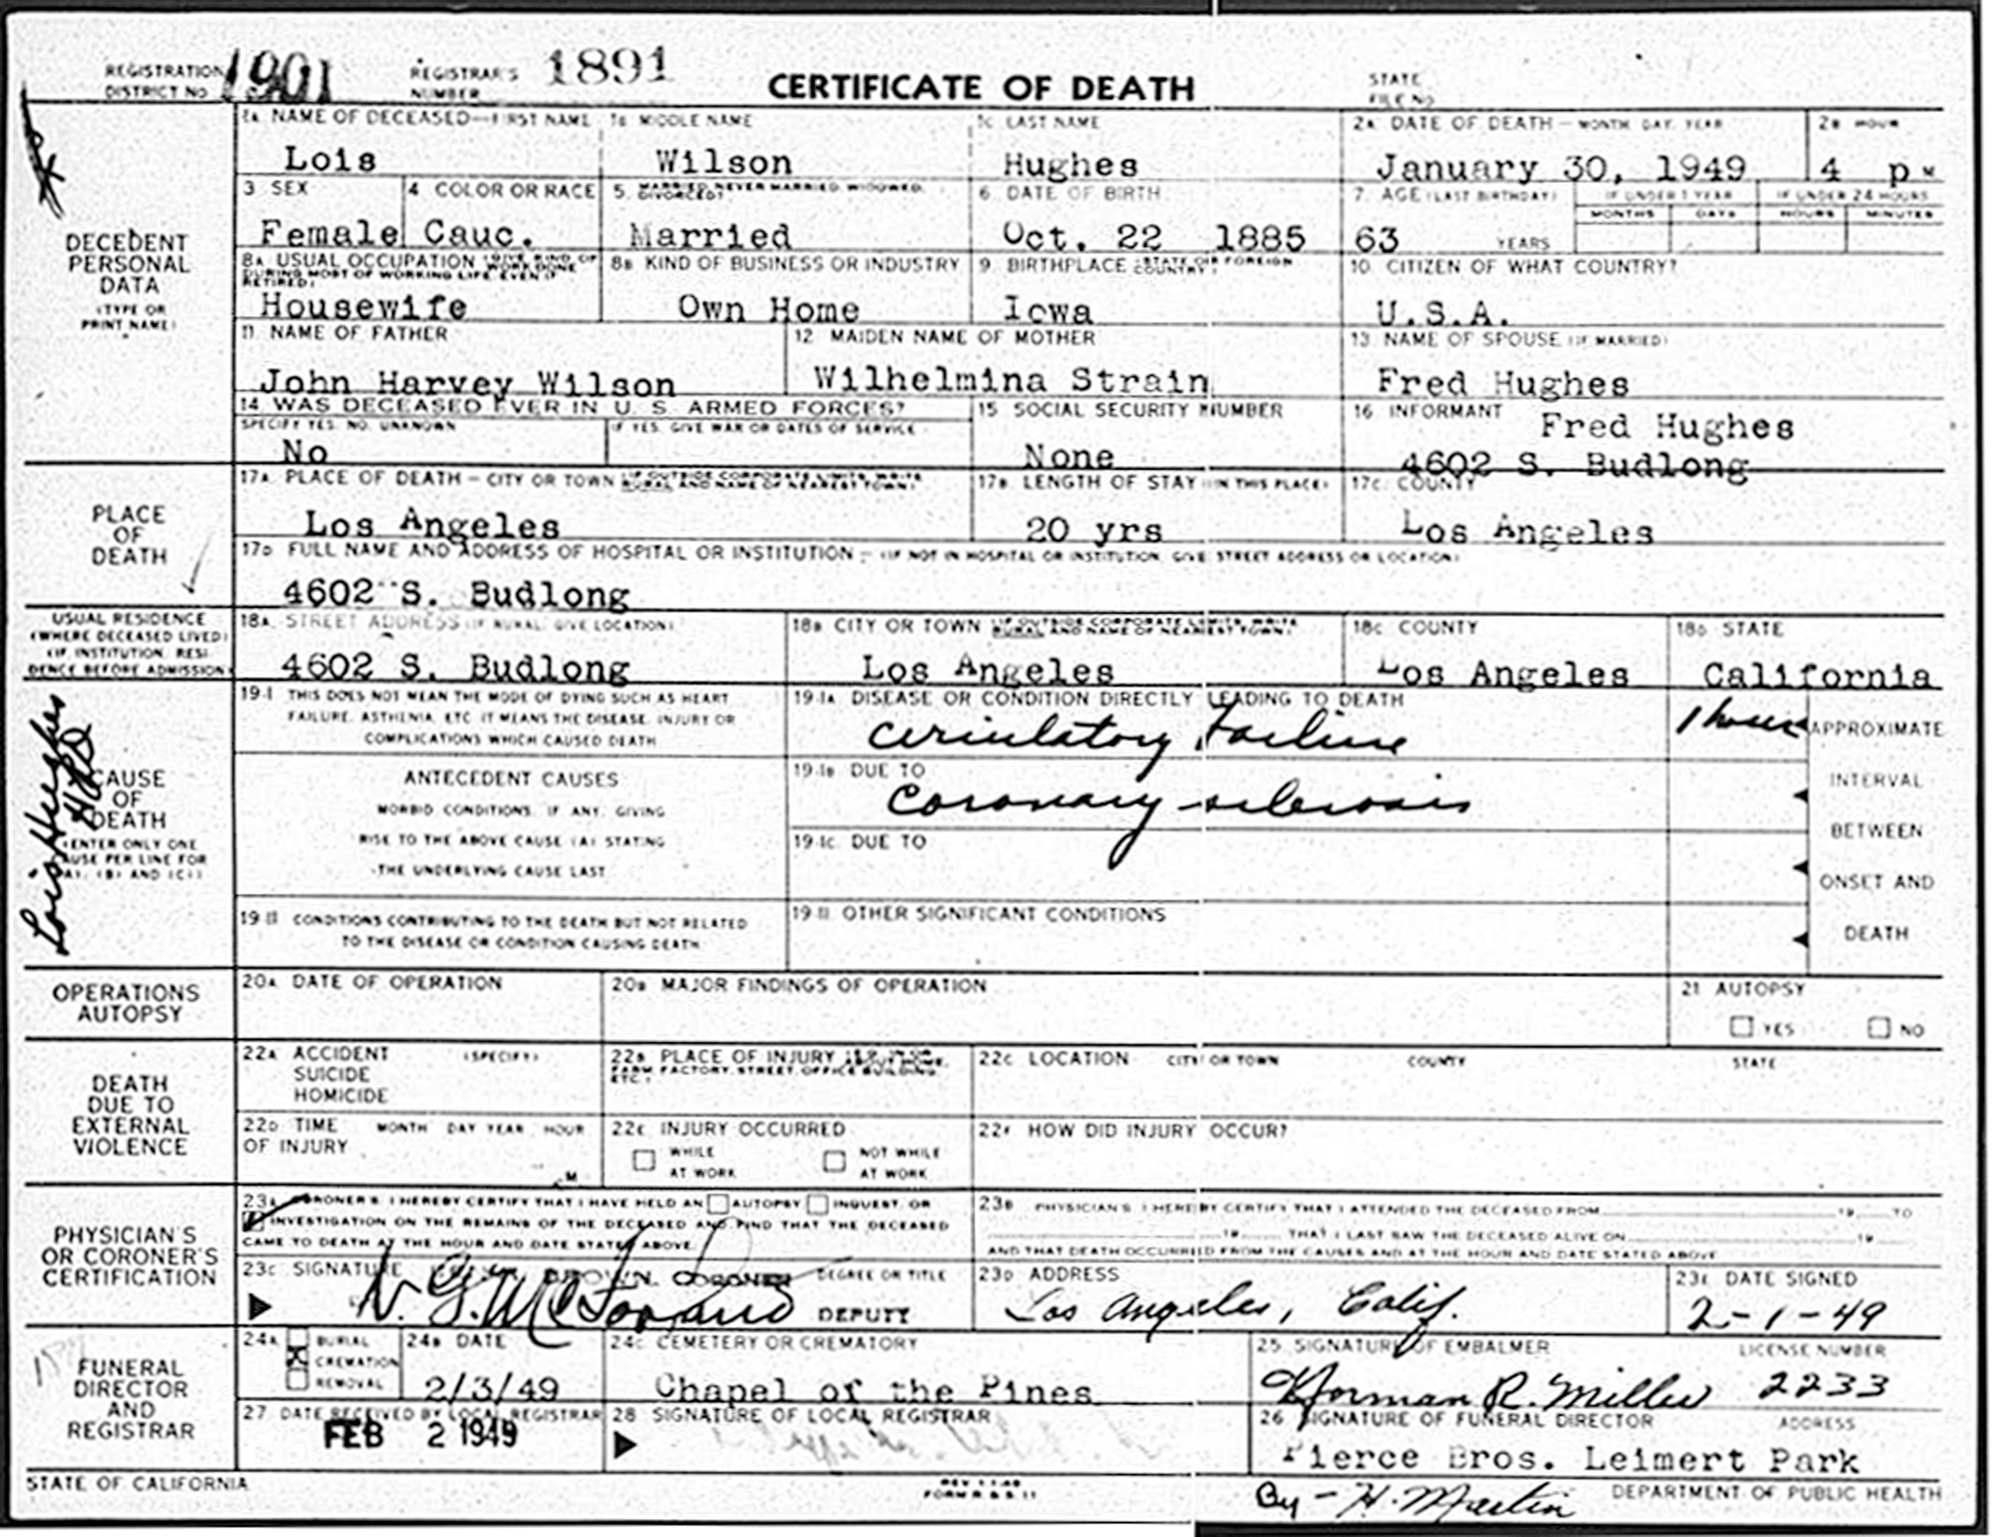 REGISTRATION DISTRICT NO 1901 REGISTRAR'S NUMBER 1891 CERTIFICATE OF DEATH STATE FILE NO
DECEDENT PERSONAL DATA (TYPE OR PRINT NAME)
1A NAME OF DECEASED—FIRST NAME 1B MIDDLE NAME 1C LAST NAME 2A DATE OF DEATH—MONTH DAY YEAR 2B HOUR
Lois Wilson Hughes January 30, 1949 4 P M
3 SEX 4 COLOR OR RACE 5 MARRIED, NEVER MARRIED, WIDOWED, DIVORCED? 6 DATE OF BIRTH 7 AGE (LAST BIRTHDAY) IF UNDER 1 YEAR IF UNDER 24 HOURS
MONTHS DAYS HOURS MINUTES
Female Cauc. Married Oct. 22 1885 63 YEARS
8A USUAL OCCUPATION (GIVE KIND OF WORK DONE DURING MOST OF WORKING LIFE, EVEN IF RETIRED) 8B KIND OF BUSINESS OR INDUSTRY 9 BIRTHPLACE (STATE OR FOREIGN COUNTRY) 10 CITIZEN OF WHAT COUNTRY?
Housewife Own Home Iowa U.S.A.
11 NAME OF FATHER 12 MAIDEN NAME OF MOTHER 13 NAME OF SPOUSE (IF MARRIED)
John Harvey Wilson Wilhelmina Strain Fred Hughes
14 WAS DECEASED EVER IN U. S. ARMED FORCES? 15 SOCIAL SECURITY NUMBER 16 INFORMANT Fred Hughes
SPECIFY YES, NO, UNKNOWN IF YES, GIVE WAR OR DATES OF SERVICE
No None 4602 S. Budlong
PLACE OF DEATH
17A PLACE OF DEATH—CITY OR TOWN (IF OUTSIDE CORPORATE LIMITS, WRITE RURAL AND NAME OF NEAREST TOWN) 17B LENGTH OF STAY (IN THIS PLACE) 17C COUNTY
Los Angeles 20 yrs Los Angeles
17D FULL NAME AND ADDRESS OF HOSPITAL OR INSTITUTION (IF NOT IN HOSPITAL OR INSTITUTION, GIVE STREET ADDRESS OR LOCATION)
4602 S. Budlong
USUAL RESIDENCE (WHERE DECEASED LIVED) (IF INSTITUTION, RESIDENCE BEFORE ADMISSION)
18A STREET ADDRESS (IF RURAL GIVE LOCATION) 18B CITY OR TOWN (IF OUTSIDE CORPORATE LIMITS, WRITE RURAL AND NAME OF NEAREST TOWN) 18C COUNTY 18D STATE
4602 S. Budlong Los Angeles Los Angeles California
Lois Hughes
CAUSE OF DEATH (ENTER ONLY ONE CAUSE PER LINE FOR (A), (B) AND (C))
19-I THIS DOES NOT MEAN THE MODE OF DYING SUCH AS HEART FAILURE, ASTHENIA, ETC. IT MEANS THE DISEASE, INJURY OR COMPLICATIONS WHICH CAUSED DEATH
19-IA DISEASE OR CONDITION DIRECTLY LEADING TO DEATH
circulatory failure 1 hour
ANTECEDENT CAUSES
MORBID CONDITIONS, IF ANY, GIVING
RISE TO THE ABOVE CAUSE (A) STATING
THE UNDERLYING CAUSE LAST
19-IB DUE TO
coronary sclerosis
19-IC DUE TO
APPROXIMATE INTERVAL BETWEEN ONSET AND DEATH
19-II CONDITIONS CONTRIBUTING TO THE DEATH BUT NOT RELATED TO THE DISEASE OR CONDITION CAUSING DEATH
19-II OTHER SIGNIFICANT CONDITIONS
OPERATIONS AUTOPSY
20A DATE OF OPERATION 20B MAJOR FINDINGS OF OPERATION 21 AUTOPSY
YES NO
DEATH DUE TO EXTERNAL VIOLENCE
22A ACCIDENT SUICIDE HOMICIDE (SPECIFY) 22B PLACE OF INJURY (E.G. IN OR ABOUT HOME, FARM, FACTORY, STREET, OFFICE BUILDING, ETC.) 22C LOCATION CITY OR TOWN COUNTY STATE
22D TIME OF INJURY MONTH DAY YEAR HOUR M 22E INJURY OCCURRED WHILE AT WORK NOT WHILE AT WORK 22F HOW DID INJURY OCCUR?
PHYSICIAN'S OR CORONER'S CERTIFICATION
23A CORONER'S: I HEREBY CERTIFY THAT I HAVE HELD AN AUTOPSY INQUEST OR
INVESTIGATION ON THE REMAINS OF THE DECEASED AND FIND THAT THE DECEASED
CAME TO DEATH AT THE HOUR AND DATE STATED ABOVE.
23B PHYSICIAN'S: I HEREBY CERTIFY THAT I ATTENDED THE DECEASED FROM 19 TO
19 THAT I LAST SAW THE DECEASED ALIVE ON 19
AND THAT DEATH OCCURRED FROM THE CAUSES AND AT THE HOUR AND DATE STATED ABOVE
23C SIGNATURE BROWN, CORONER DEGREE OR TITLE 23D ADDRESS 23E DATE SIGNED
DEPUTY Los Angeles, Calif. 2-1-49
FUNERAL DIRECTOR AND REGISTRAR
24A BURIAL CREMATION REMOVAL 24B DATE 24C CEMETERY OR CREMATORY 25 SIGNATURE OF EMBALMER LICENSE NUMBER
X 2/3/49 Chapel of the Pines Norman R. Miller 2233
27 DATE RECEIVED BY LOCAL REGISTRAR 28 SIGNATURE OF LOCAL REGISTRAR 26 SIGNATURE OF FUNERAL DIRECTOR ADDRESS
FEB 2 1949 Pierce Bros. Leimert Park
By - H. Martin
STATE OF CALIFORNIA DEPARTMENT OF PUBLIC HEALTH